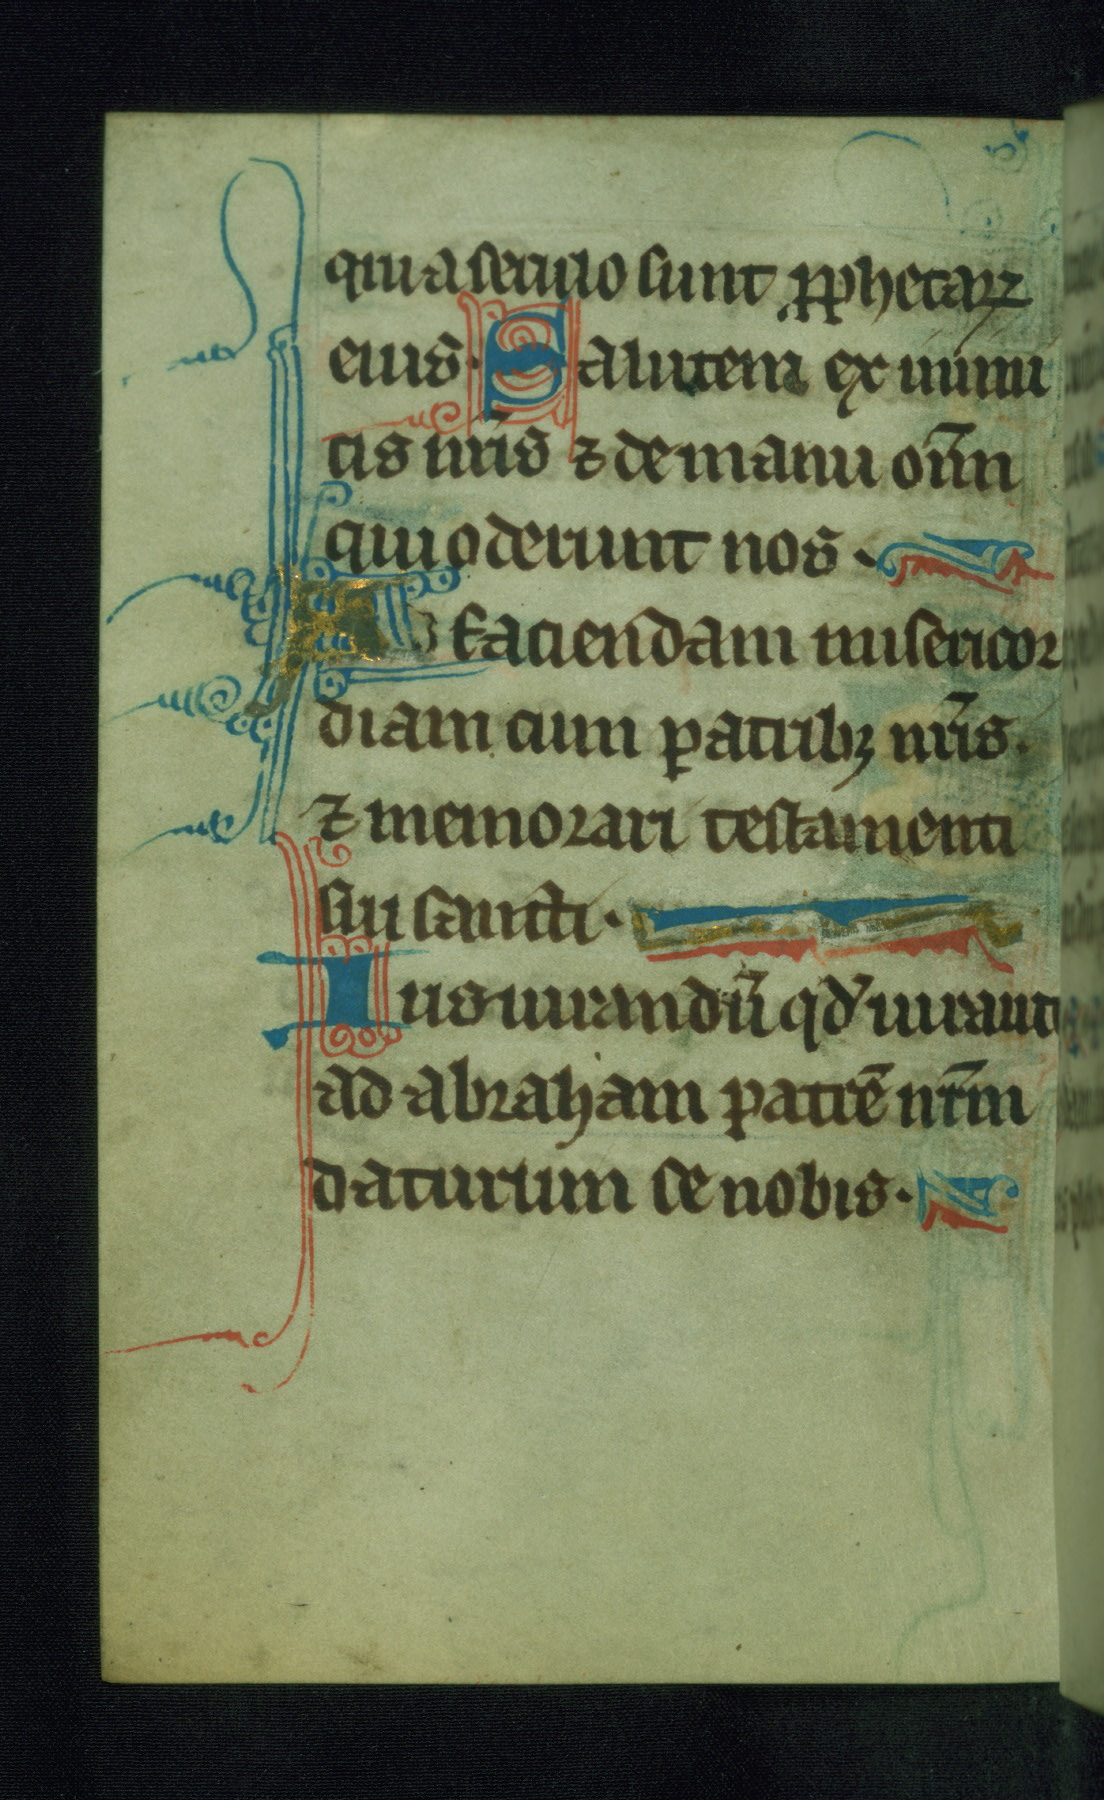 qui a seculo sunt ꝓphetaꝝ
eius· Salutem ex inimi
cis nr̄is ⁊ de manu om̄n
qui oderunt nos·
Ad faciendam misericor
diam cum patribꝫ nr̄is·
⁊ memorari testamenti
sui sancti·
Iusiurandū qd' iurauit
ad abraham patrē nr̄m
daturum se nobis·